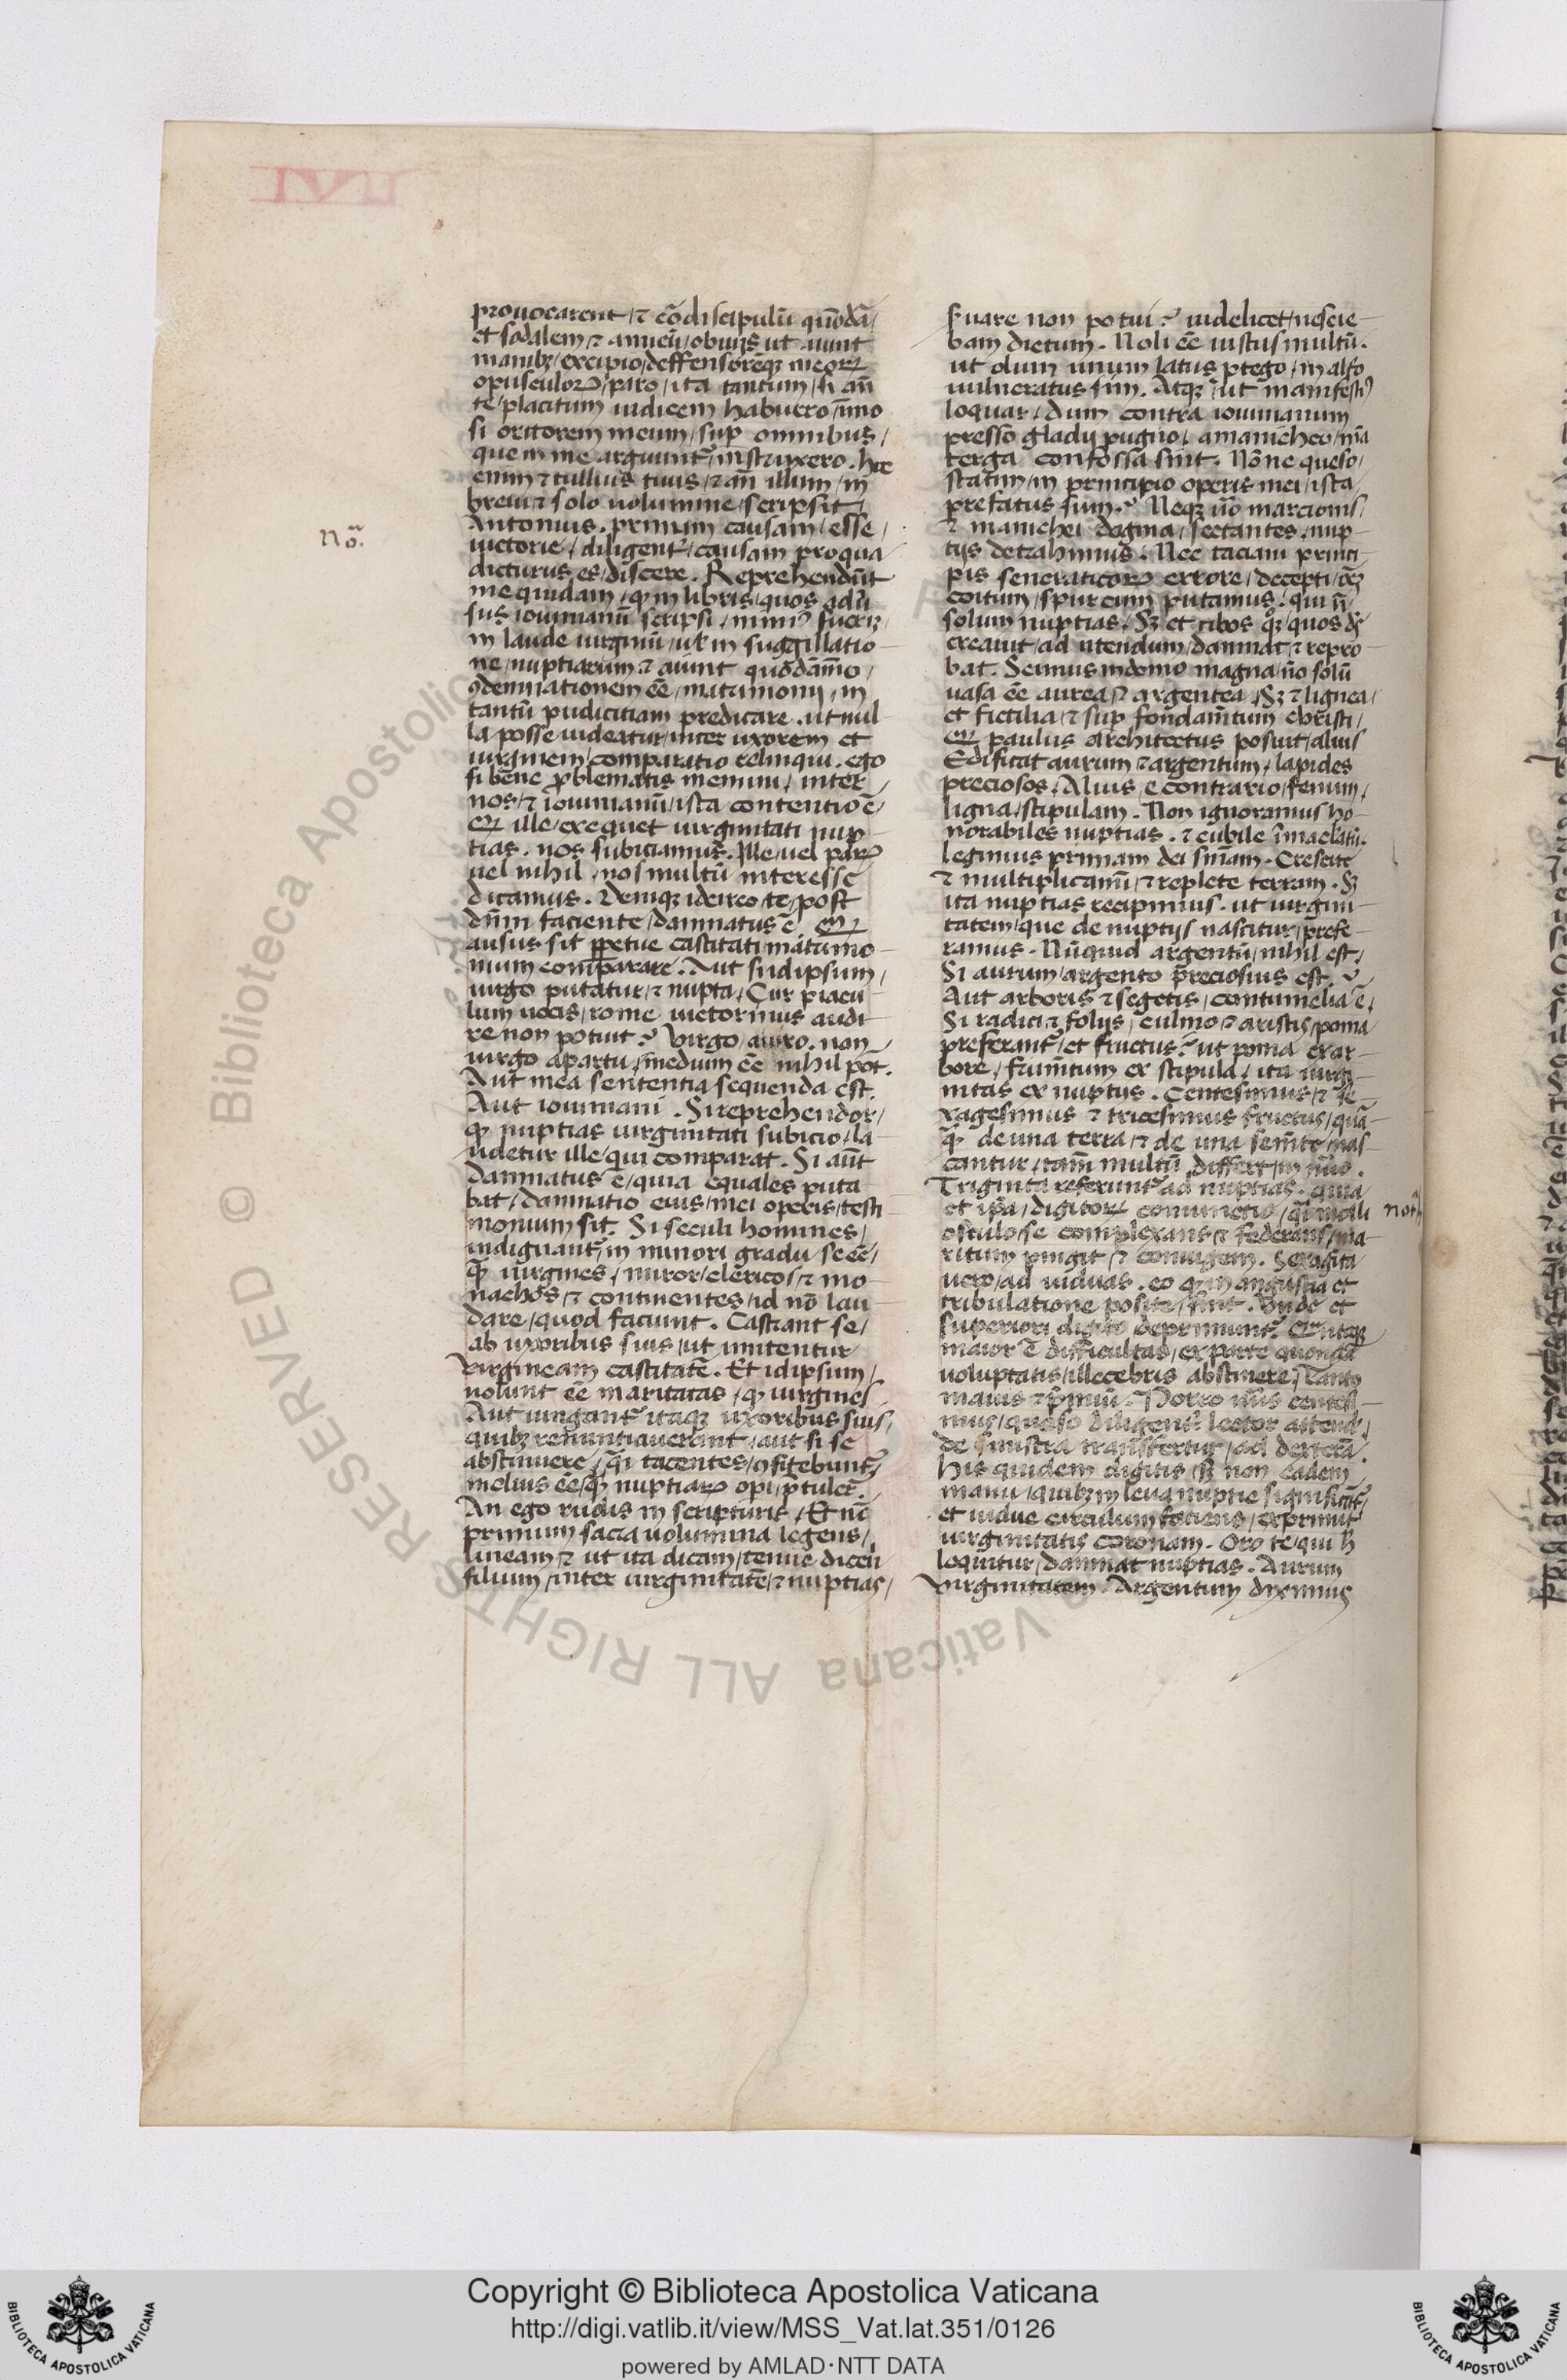 prouocarent / ⁊ cōdiscipulū quōdā /
et sodalem ⁊ amicū / obuijs ut aiunt
manibꝫ / excipio / deffensorēqꝫ meoꝝ
opusculoꝝ / paro / ita tantum / si añ
te / placitum iudicem habuero / imo
si oratorem meum / sup omnibus /
quem me arguunt᷑ / instruxero . hoc
enim ⁊ tullius tuus / ⁊ añ illum / in
breui ⁊ solo uolumine / scripsit /
Antonius . primam causam / esse /
uictorie / diligent᷑ / causam pro qua
dicturus es / discere . Reprehendūt
me quidam / ꝙ in libris / quos adū
sus iouinianū scripsi / nimiꝰ fuerim
in laude uirginū / uł in suggillatio
ne / nuptiarum ⁊ aiunt quodāmo /
ꝯdemnationem eē / matrimonij / in
tantū pudicitiam predicare . ut nul
la posse uideatur / inter uxorem et
uirginem / comparatio relinqui . ego
si bene ꝓblematis memini / inter
nos / ⁊ iouinianū / ista contentio ē
qꝛ ille / exequet uirginitati nup
tias . nos subiciamus . Ille / uel paꝝ
uel nihil / nos multū interesse
dicamus . Deniqꝫ idcirco / te / post
dñm faciente / damnatus ē qꝛ
ausus sit ꝑpetue castitati / matrimo
nium comparare . Aut si idipsum /
uirgo putatur / ⁊ nupta / Cur piacu
lum uocis / rome uictorinus audi
re non potuit ? Virgo / a uiro . non
uirgo a partu / medium eē nihil pōt .
Aut mea sententia sequenda est .
Aut iouiniani . Si reprehendor /
ꝙ nuptias uirginitati subicio / la
udetur ille / qui comparat . Si aūt
damnatus ē / quia equales puta
bat / damnatio eius / mei operis / testi
monium sit . Si seculi homines /
indignant᷑ / in minori gradu se eē /
ꝙ̄ uirgines / miror / clericos / ⁊ mo
nachos / ⁊ continentes / id nō lau
dare / quod faciunt . Castrant se /
ab uxoribus suis / ut imitentur
virgineam castitatē . Et idipsum /
uolunt eē maritatas / ꝙ uirgines
Aut iungant᷑ itaqꝫ uxoribus suis /
quibꝫ renuntiauerant / aut si se
abstinuere / q̄i tacentes / ꝯfitebunt᷑
melius eē / ꝙ̄ nuptiaꝝ opi / ꝑtuler̄ .
An ego rudis in scripturis / Et nc̄
primum sacra uolumina legens /
lineam / ⁊ ut ita dicam / tenue dicēi
filium / inter uirginitatē / ⁊ nuptias /
No.
s̄uare non potui ? uidelicet / nescie
bam dictum . Noli eē iustus multū .
ut dum unum latus ꝑtego / in alto
uulneratus sim . Atqꝫ / ut manifestiꝰ
loquar / dum contra iouinianum
presso gladij pugno / a manicheo / mīa
terga confossa sint . Nōne queso /
statim / in principio operis mei / ista
prefatus sum ? Neqꝫ ūo marcionis /
⁊ manichei dogma / sectantes . nup
tijs detrahimus . Nec taciani princi
pis seneraticoꝝ errore / decepti / oēꝫ
coitum / spurcum putamus . qui ñ
solum nuptias / Sꝫ et cibos qꝫ / quos dꝰ
creauit / ad utendum / damnat / ⁊ repro
bat . Scimus in domo magna / no solū
uasa eē aurea / ⁊ argentea / Sꝫ ⁊ lignea /
et fictilia / ⁊ sup fondamtum christi /
qꝛ paulus architectus posuit / alius
Edificat aurum ⁊ argentum / lapides
preciosos / Alius / e contrario / fenum /
ligna / stipulam . Non ignoramus ho
norabiles nuptias . ⁊ cubile imaclatū .
Legimus primam dei sniam . Crescite
⁊ multiplicamī / ⁊ replete terram . Sꝫ
ita nuptias recipimus . ut uirgini
tatem / que de nuptijs nascitur / prefe
ramus . Nūquid argentū / nihil est /
Si aurum / argento preciosius est ?
Aut arboris ⁊ segetis / contumelia ē /
Si radici ⁊ folijs / culmo / ⁊ aristis / poma
preferant᷑ / et fructus ? ut poma ex ar
bore / frumtum ex stipula / ita uirgi
nitas ex nuptijs . Centesimus / ⁊ se
xagesimus ⁊ tricesimus fructus / quā
ꝙ̄ de una terra / ⁊ de una semte / nas
cantur / tam̄ multū differt / in nūo .
Triginta referunt᷑ ad nuptias . quia
et ip̄a / digitoꝝ coniunctio / q̄i molli
osculo / se complexans / ⁊ federans / ma
ritum pingit / ⁊ coniugem . Sexaginta
uero / ad uiduas . eo ꝙ in angustia et
tribulatione posite / sint . Vnde et
superiori digito deprimunt᷑ . Quātaqꝫ
maior ē difficultas / experte quondā
uoluptatis / illecebris abstinere / Tanto
maius ⁊ p̄miū . Porro nūs centesi
mus / queso diligent᷑ lector attende /
de sinistra transfertur / ad dexterā .
his quidem digitis / sꝫ non eadem
manu / quibꝫ in leua nuptie significāt᷑
et uidue circulum faciens / exprimit
uirginitatis coronam . Oro te / qui h̄
loquitur / damnat nuptias . Aurum
virginitatem . Argentum diximus
not̄
© Biblioteca Apostolica Vaticana ALL RIGHTS RESERVED
Copyright © Biblioteca Apostolica Vaticana
http://digi.vatlib.it/view/MSS_Vat.lat.351/0126
powered by AMLAD·NTT DATA
BIBLIOTECA APOSTOLICA VATICANA
BIBLIOTECA APOSTOLICA VATICANA